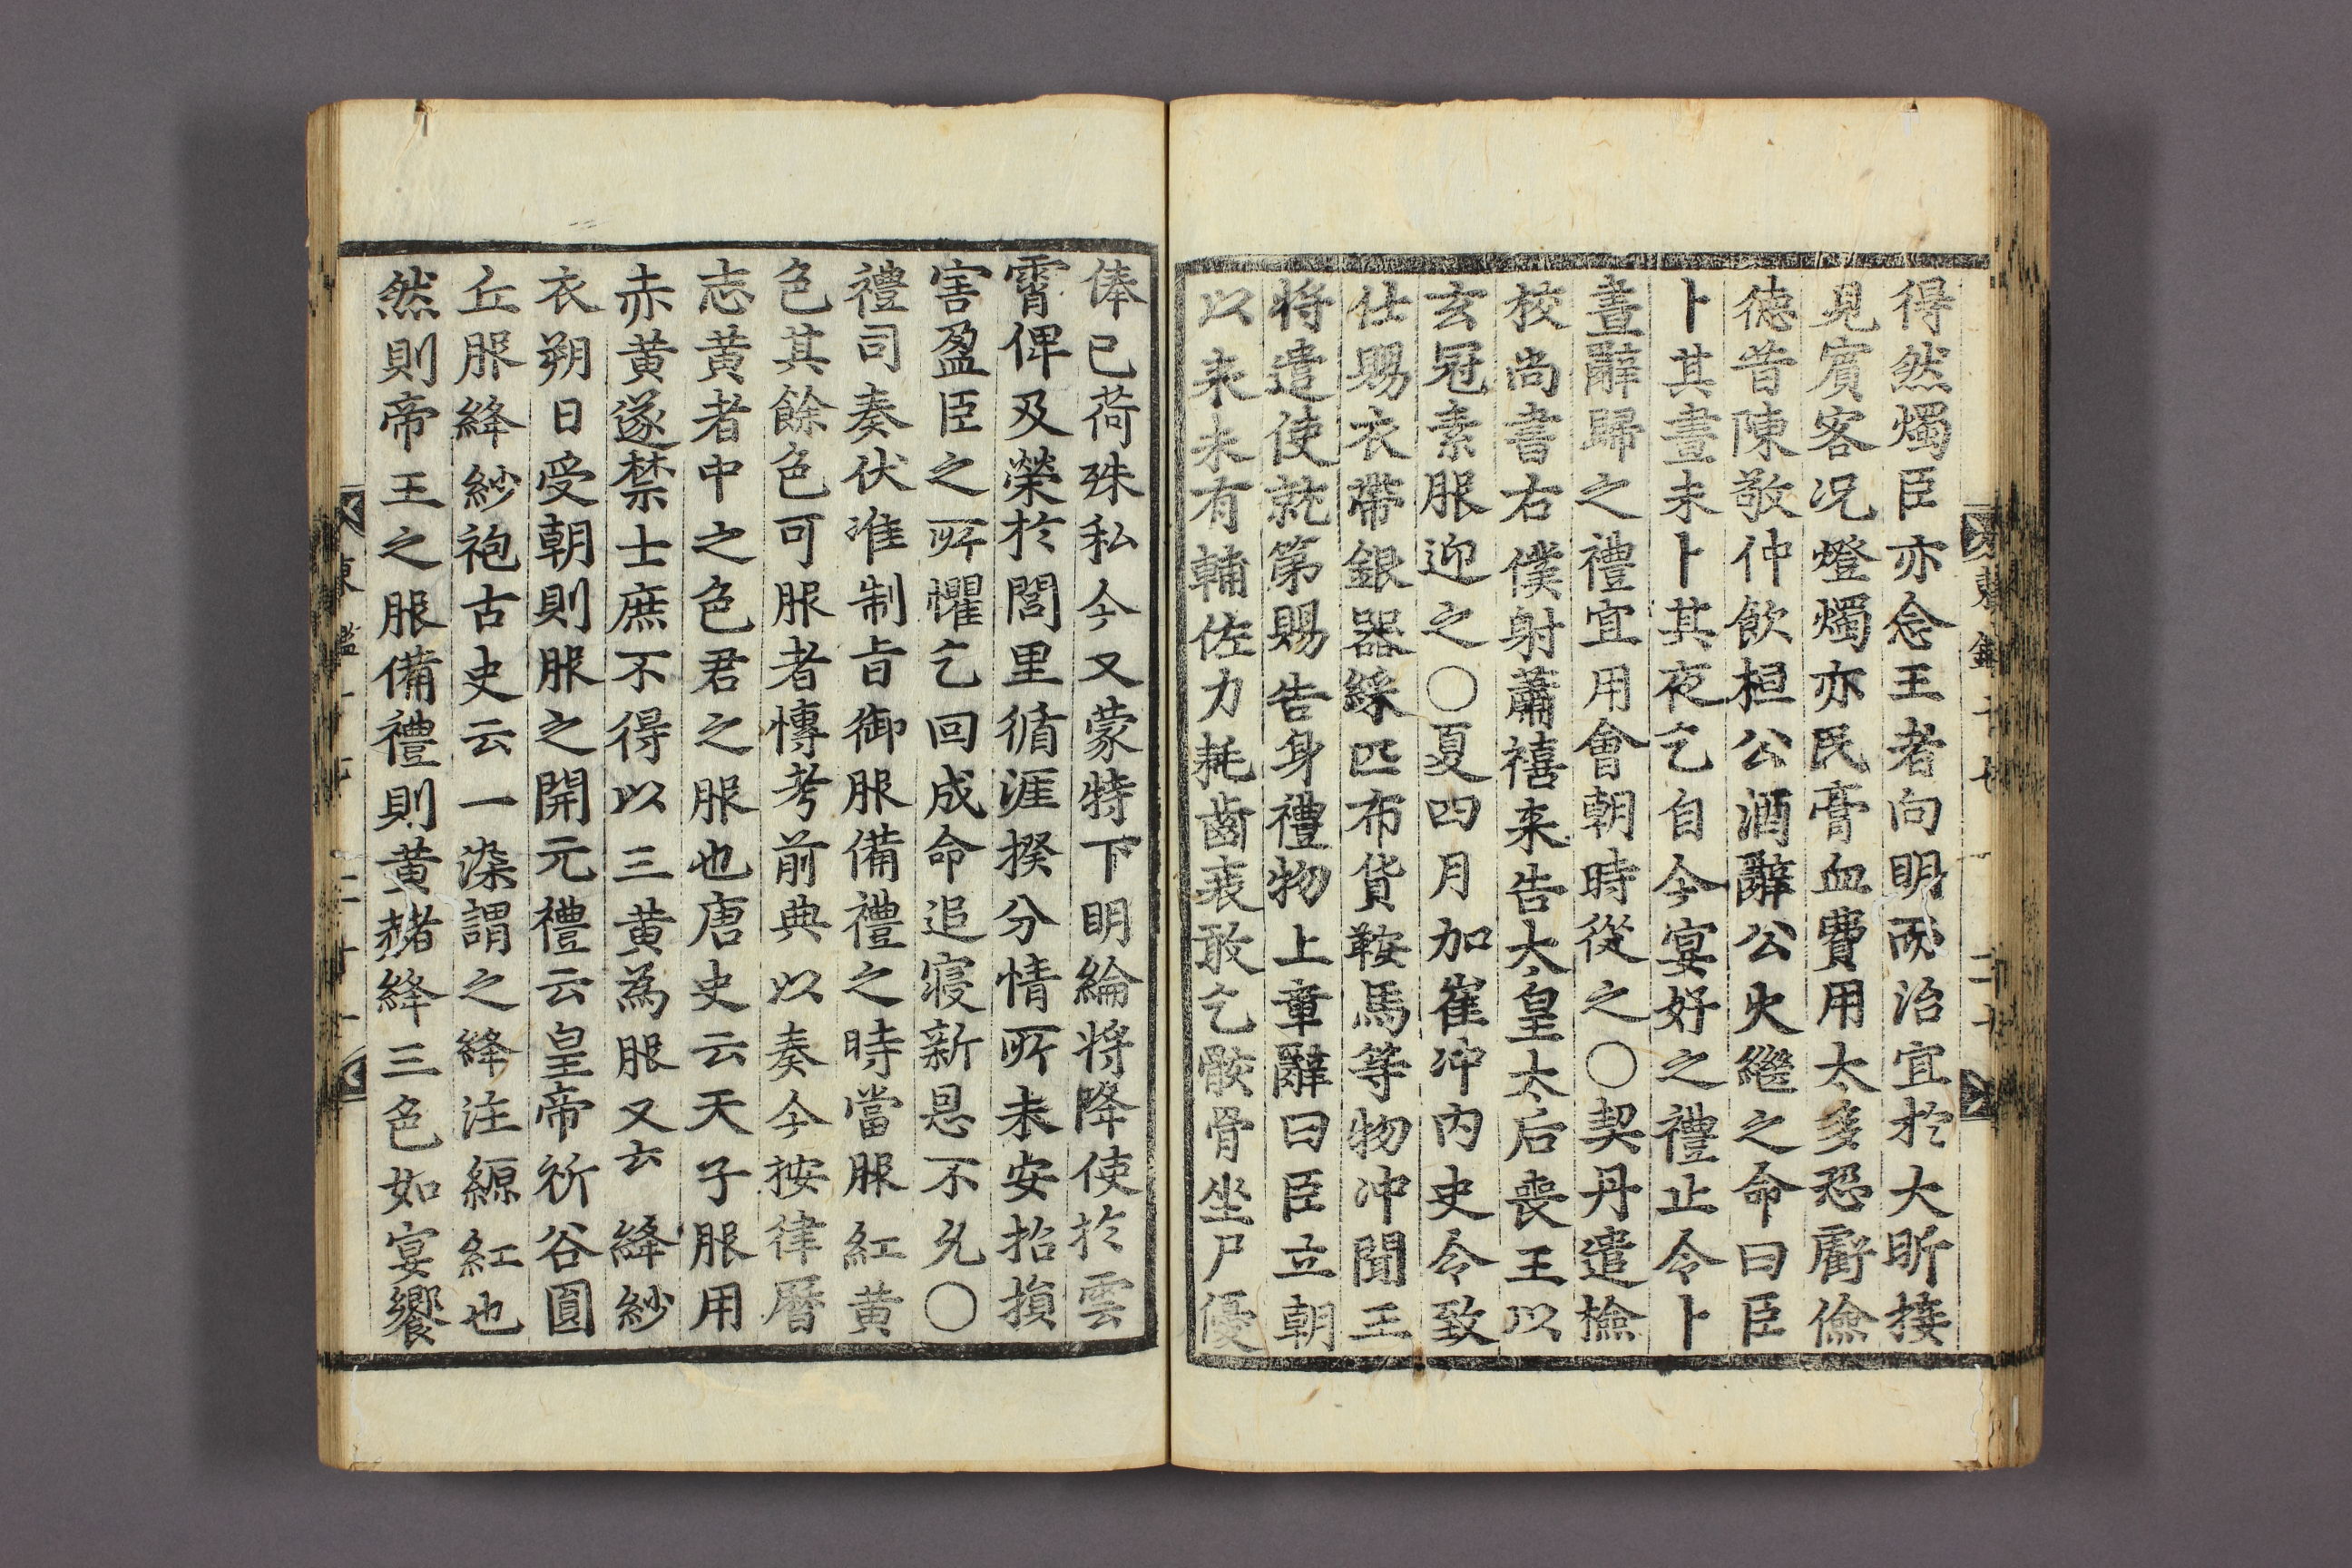 得然燭臣亦念王者向明而治宜於大昕接
見賓客况燈燭亦民膏血費用太多恐虧儉
德昔陳敬仲飮桓公酒辭公火繼之命曰臣
卜其晝未卜其夜乞自今宴好之禮止令卜
晝辭歸之禮宜用會朝時從之〇契丹遣檢
校尚書右僕射蕭禧来告太皇太后喪王以
玄冠素服迎之〇夏四月加崔冲内史令致
仕賜衣帶銀器綵匹布貨鞍馬等物冲聞王
將遣使就第賜告身禮物上章辭曰臣立朝
以来未有輔佐力耗齒衰敢乞骸骨坐尸優
俸已荷殊私今又蒙特下明綸將降使於雲
霄俾及榮於閭里循涯揆分情所未安招損
害盈臣之所懼乞回成命追寢新恩不允〇
禮司奏伏准制旨御服備禮之時當服紅黄
色其餘色可服者愽考前典以奏今按律曆
志黄者中之色君之服也唐史云天子服用
赤黄遂禁士庶不得以三黄為服又云絳紗
衣朔日受朝則服之開元禮云皇帝祈谷圓
丘服絳紗袍古史云一染謂之絳注縓紅也
然則帝王之服備禮則黄赭絳三色如宴饗